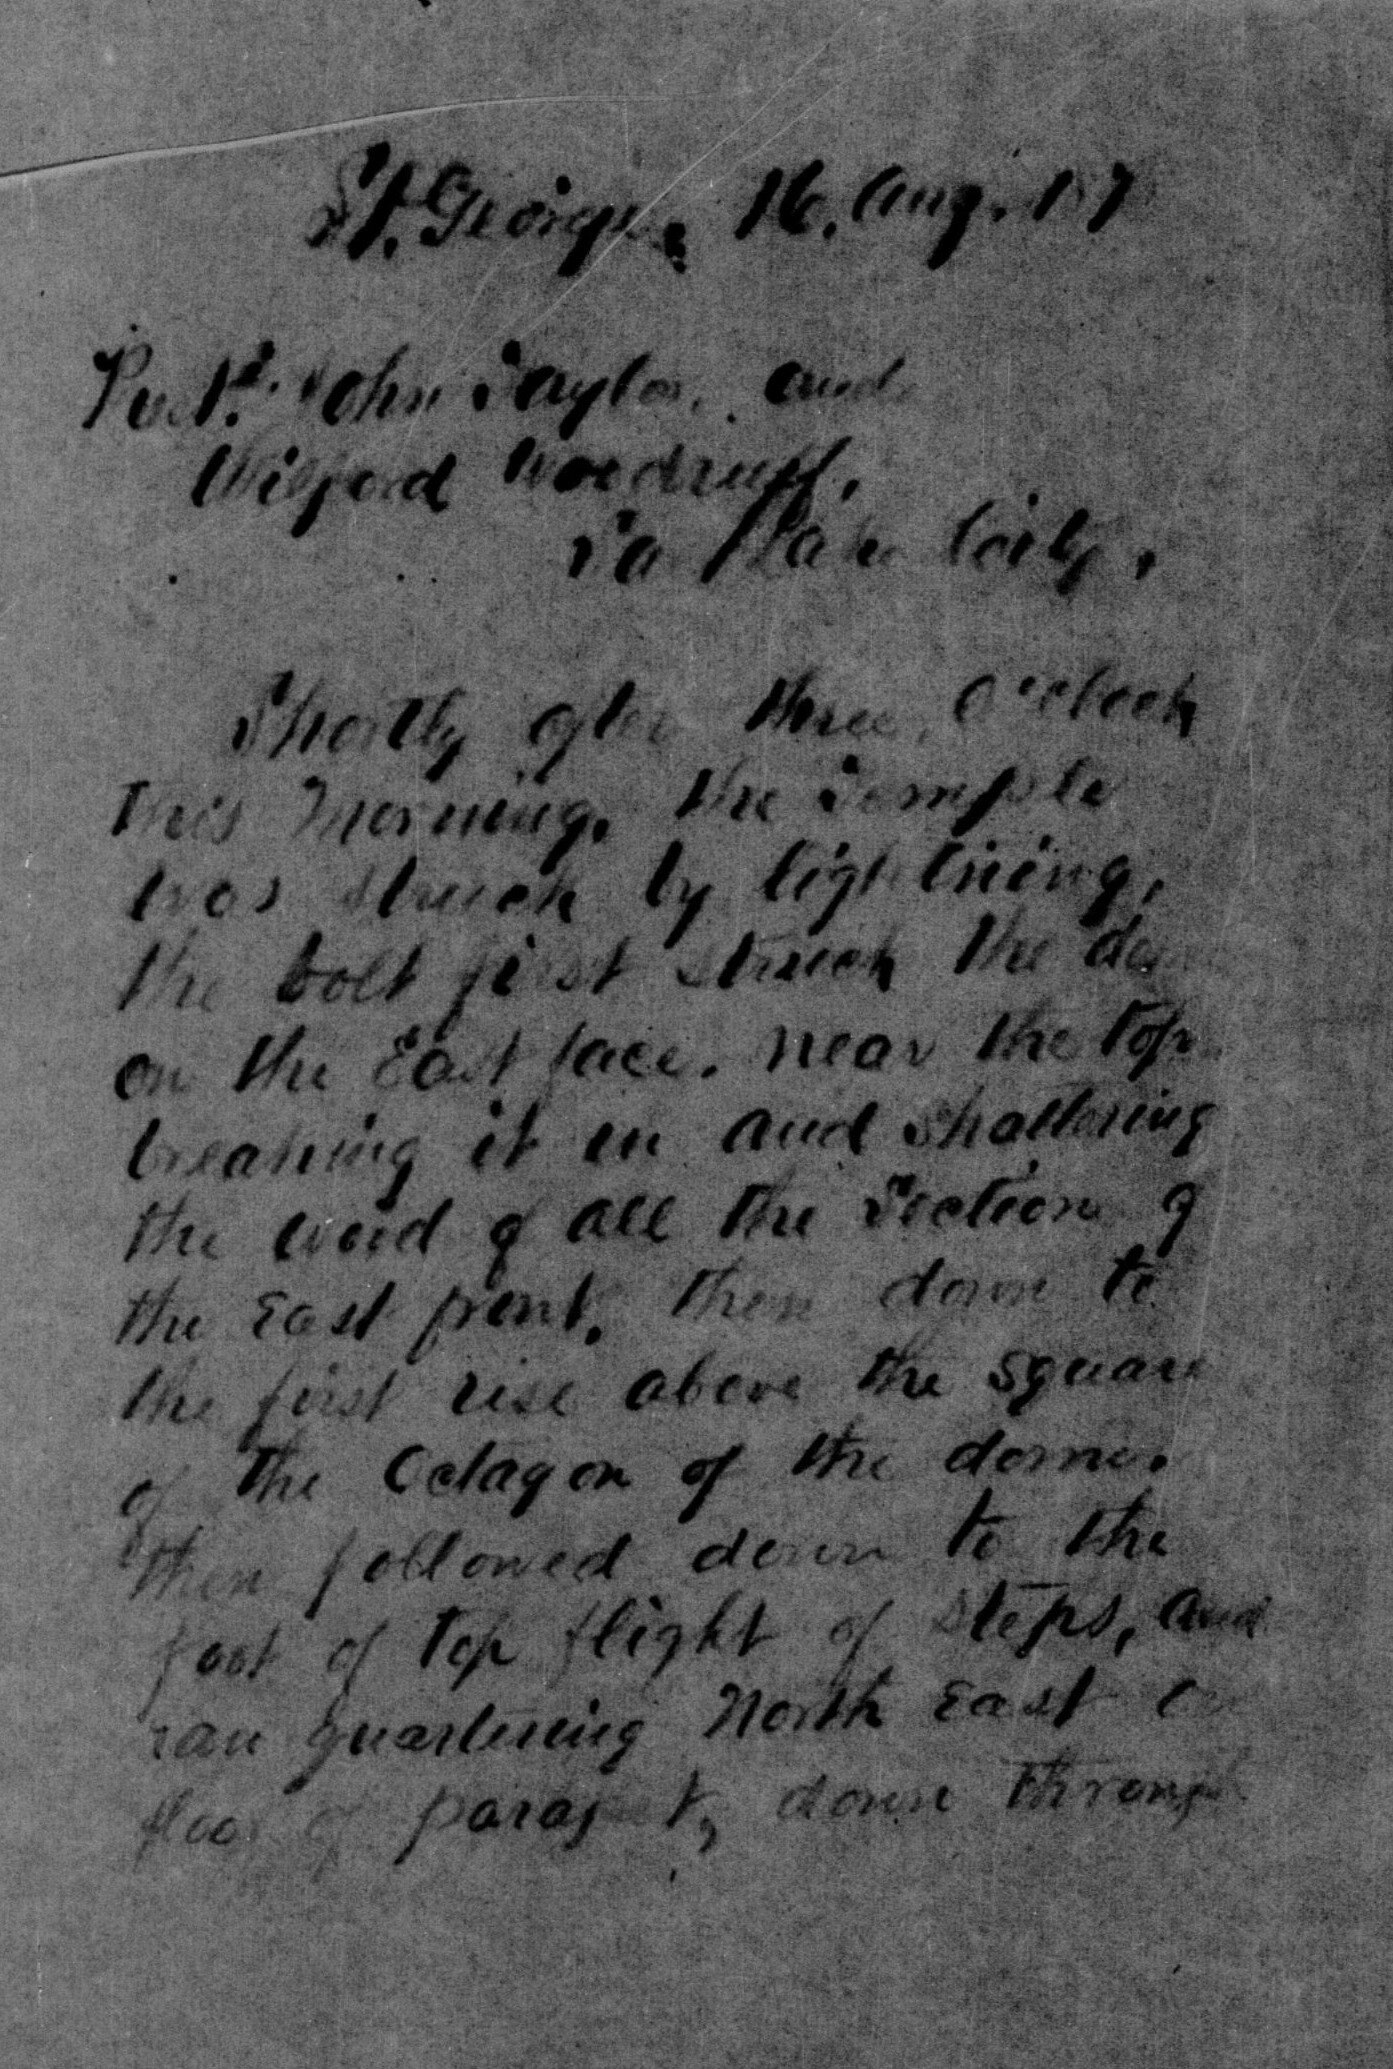 St. George, 16. Aug. 187
Prest. John Taylor, and
Wilford Woodruff,
Sa Lake City,
Shortly after three, o'clock
this morning, the Temple
was struck by lightning,
the bolt first struck the
on the East face. near the top
breaking it in and shattering
the wood of all the section of
the East front, then down to
the first rise above the square
of the Octagon of the dome.
then followed down to the
foot of top flight of steps, and
ran quartering North East
floor of parapet, down through